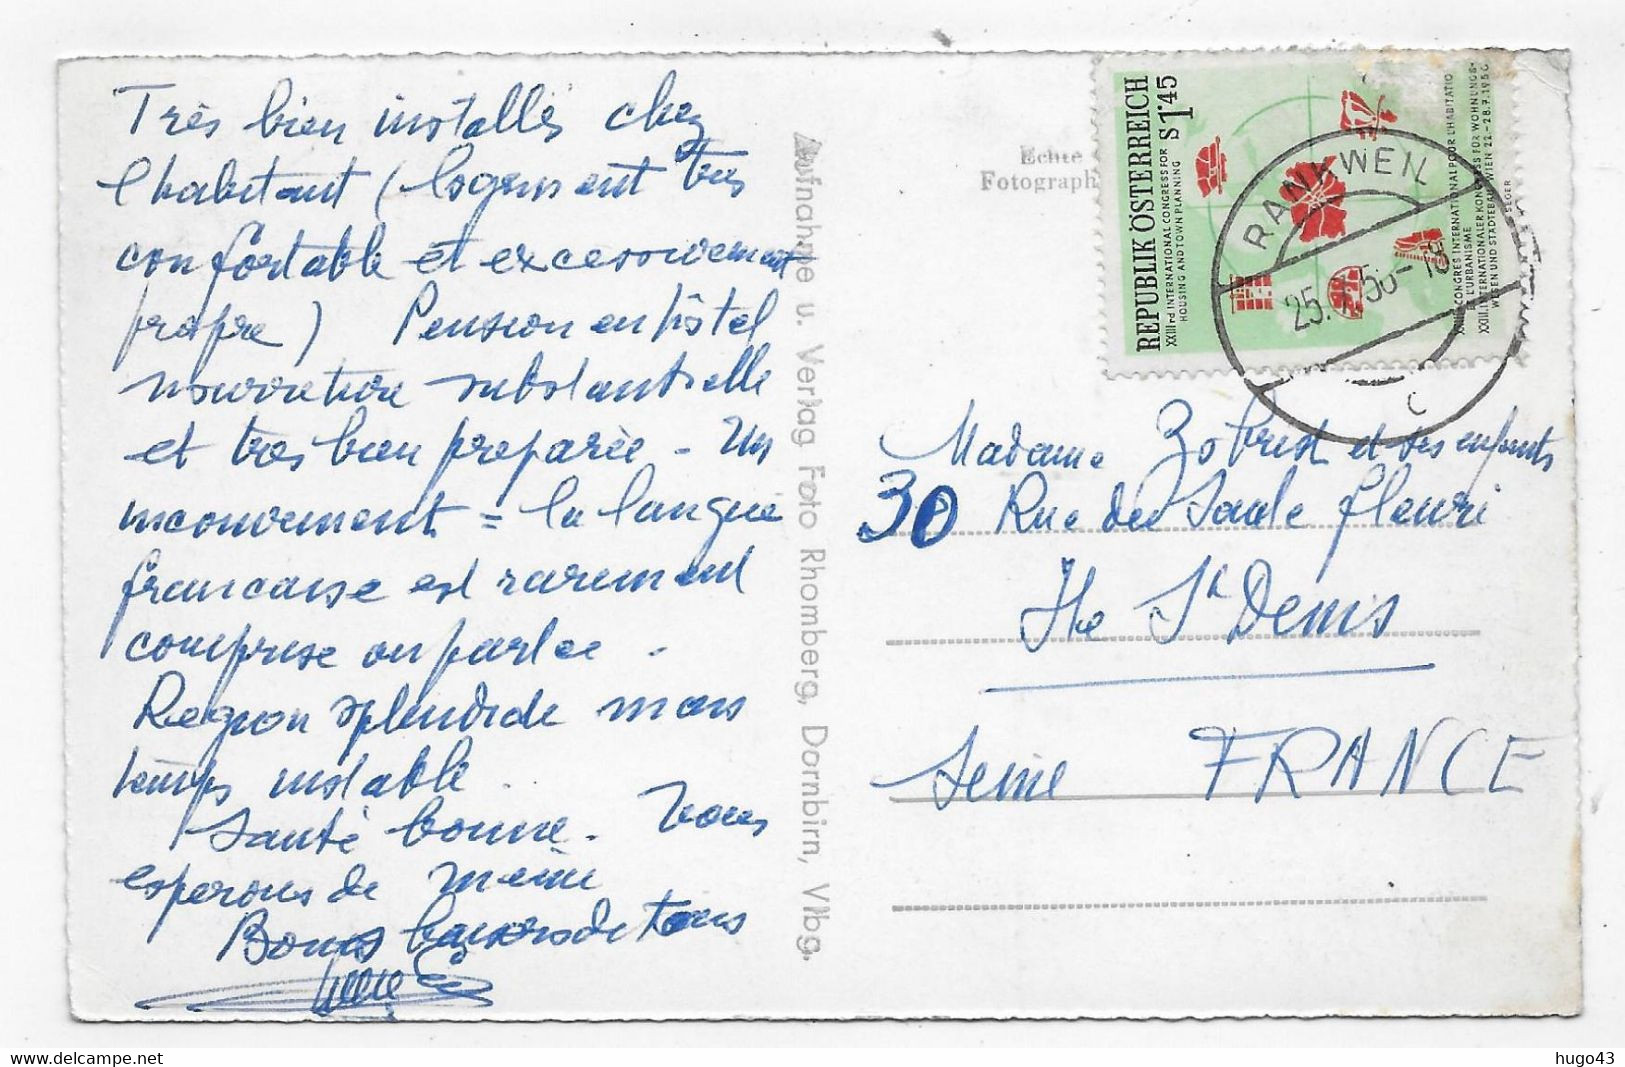 Très bien installés chez
l'habitant (logement très
confortable et excessivement
propre) Pension en hôtel
nourriture substantielle
et très bien préparée - Un
inconvenient = la langue
francaise est rarement
comprise ou parlée -
Region splendide mais
temps instable.
Santé bonne - Vous
esperons de même
Bons baisers de tous
Aufnahme u. Verlag Foto Rhomberg, Dornbirn, Vlbg.
Echte
Fotograph
REPUBLIK ÖSTERREICH
S 1·45
XXIIIrd INTERNATIONAL CONGRESS FOR
HOUSING AND TOWN PLANNING
XXIII. CONGRES INTERNATIONAL POUR L'HABITATIO
ET L'URBANISME
XXIII. INTERNATIONALER KONGRESS FÜR WOHNUNGS-
WESEN UND STÄDTEBAU WIEN 22.-28.7.1956
SEGER
RANKWEIL
25. 56-18
c
Madame Zobrist et ses enfants
30 Rue du Saule fleuri
Ile St Denis
Seine FRANCE
hugo43